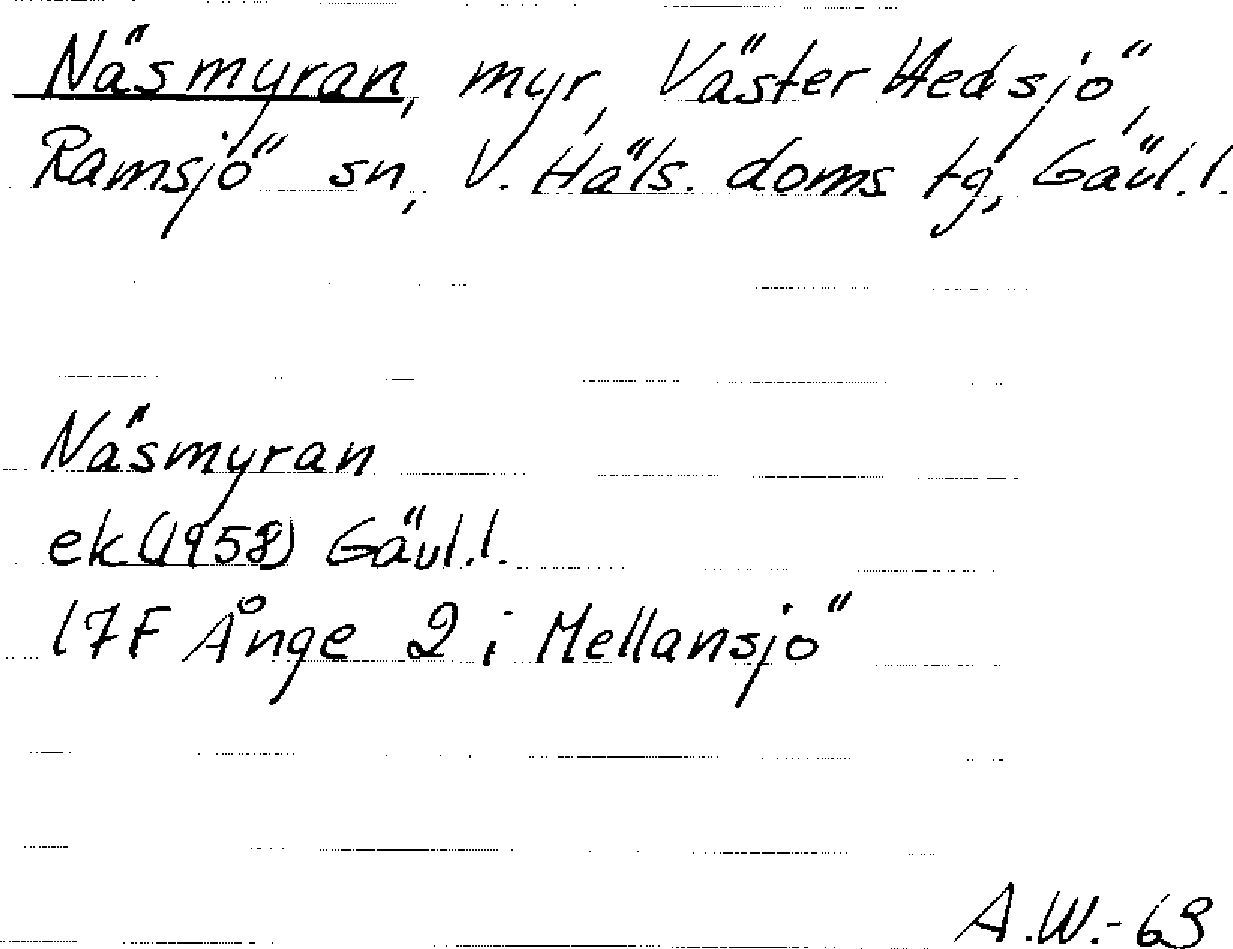 Näsmyran, myr, Väster Hedsjö,
Ramsjö sn, V. Häls. doms tg, Gävl.l.
Näsmyran
ek (1958) Gävl.l.
17F Ånge 2 i Mellansjö
A.W.-69